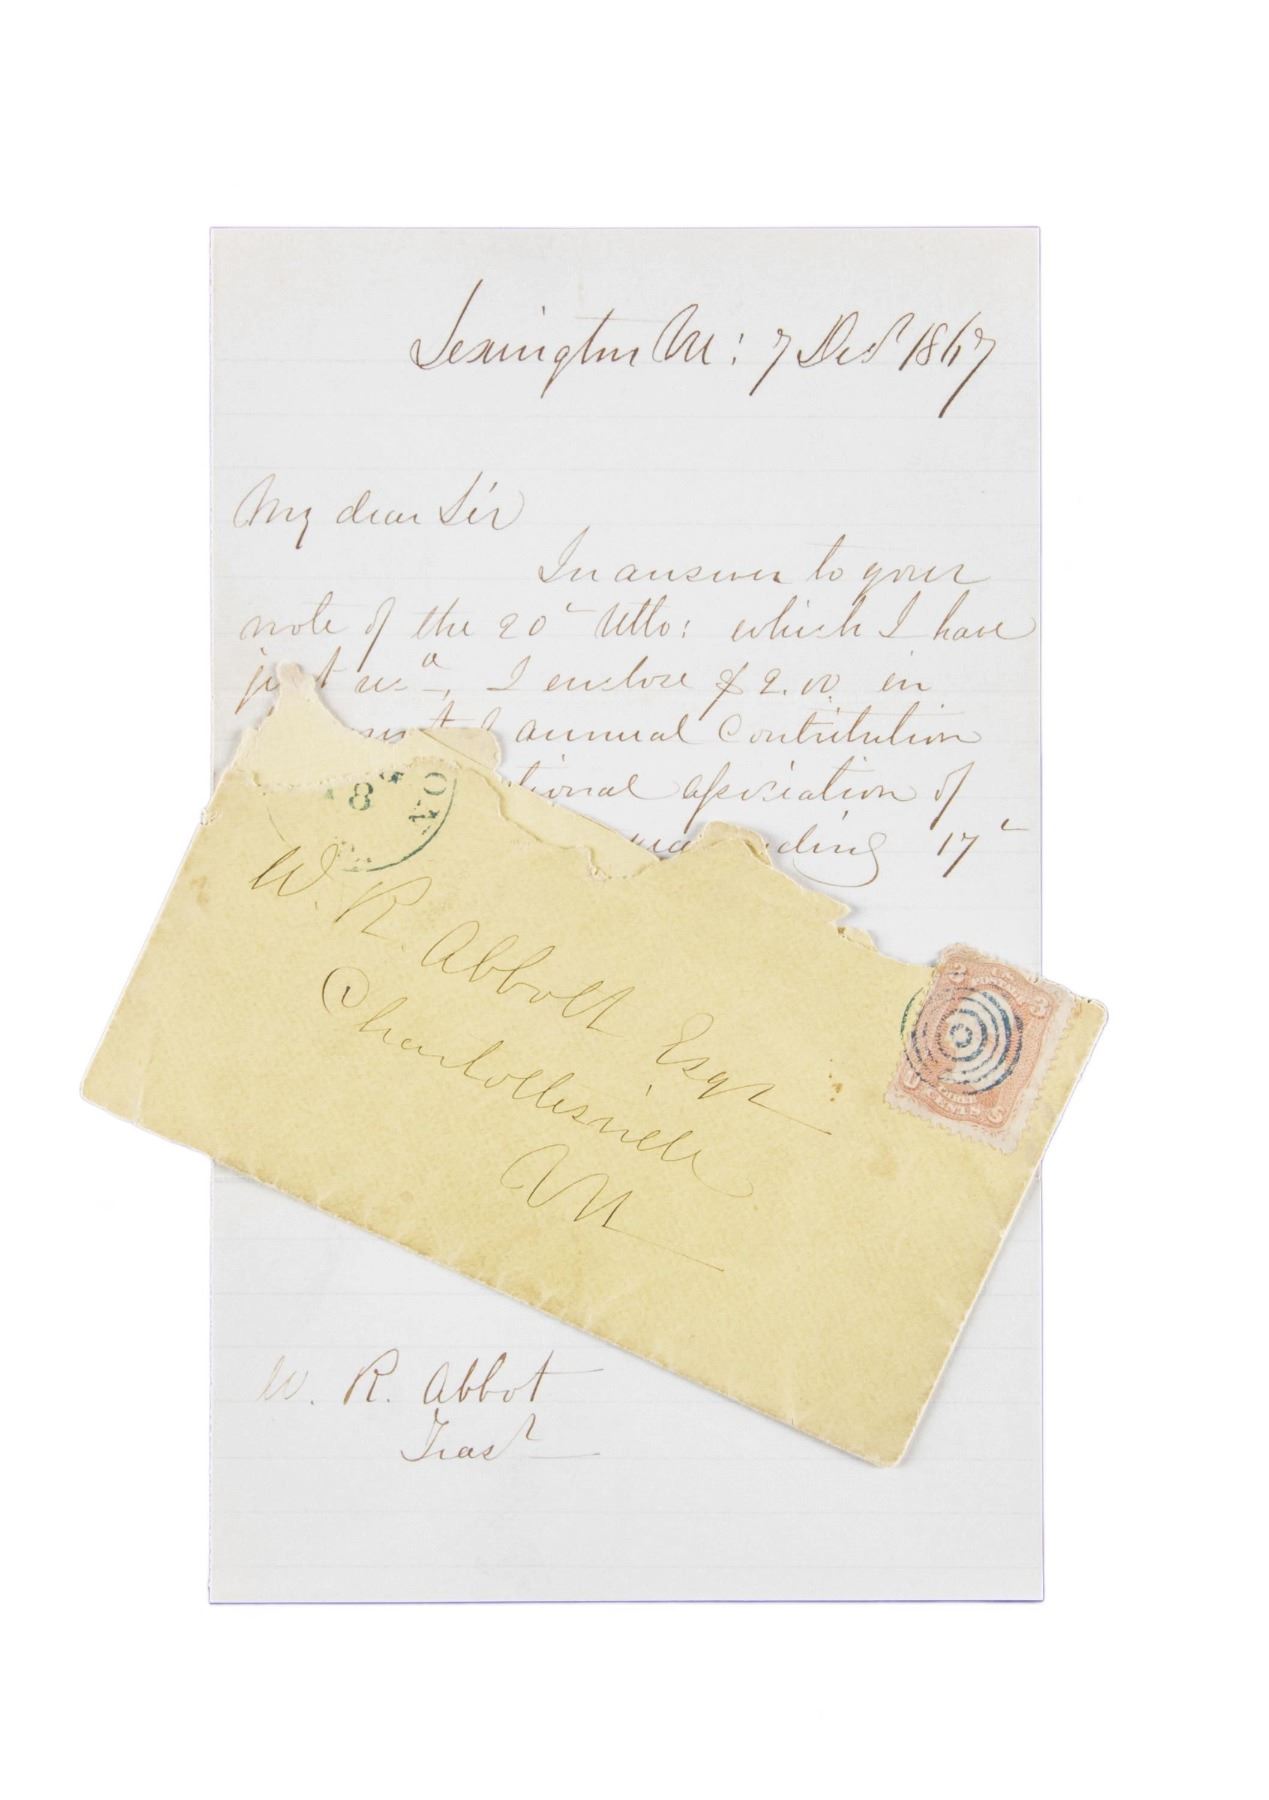 Lexington Va: 7 Decr 1867
My dear Sir
In answer to your
note of the 20th Ulto: which I have
just recd, I enclose $2.00 in
annual Contribution
tional association of
ending 17th
8
W. R. Abbott Esqr
Charlottesville
Va
3 3
U.S.
POSTAGE
THREE
CENTS
W. R. Abbot
Treasr